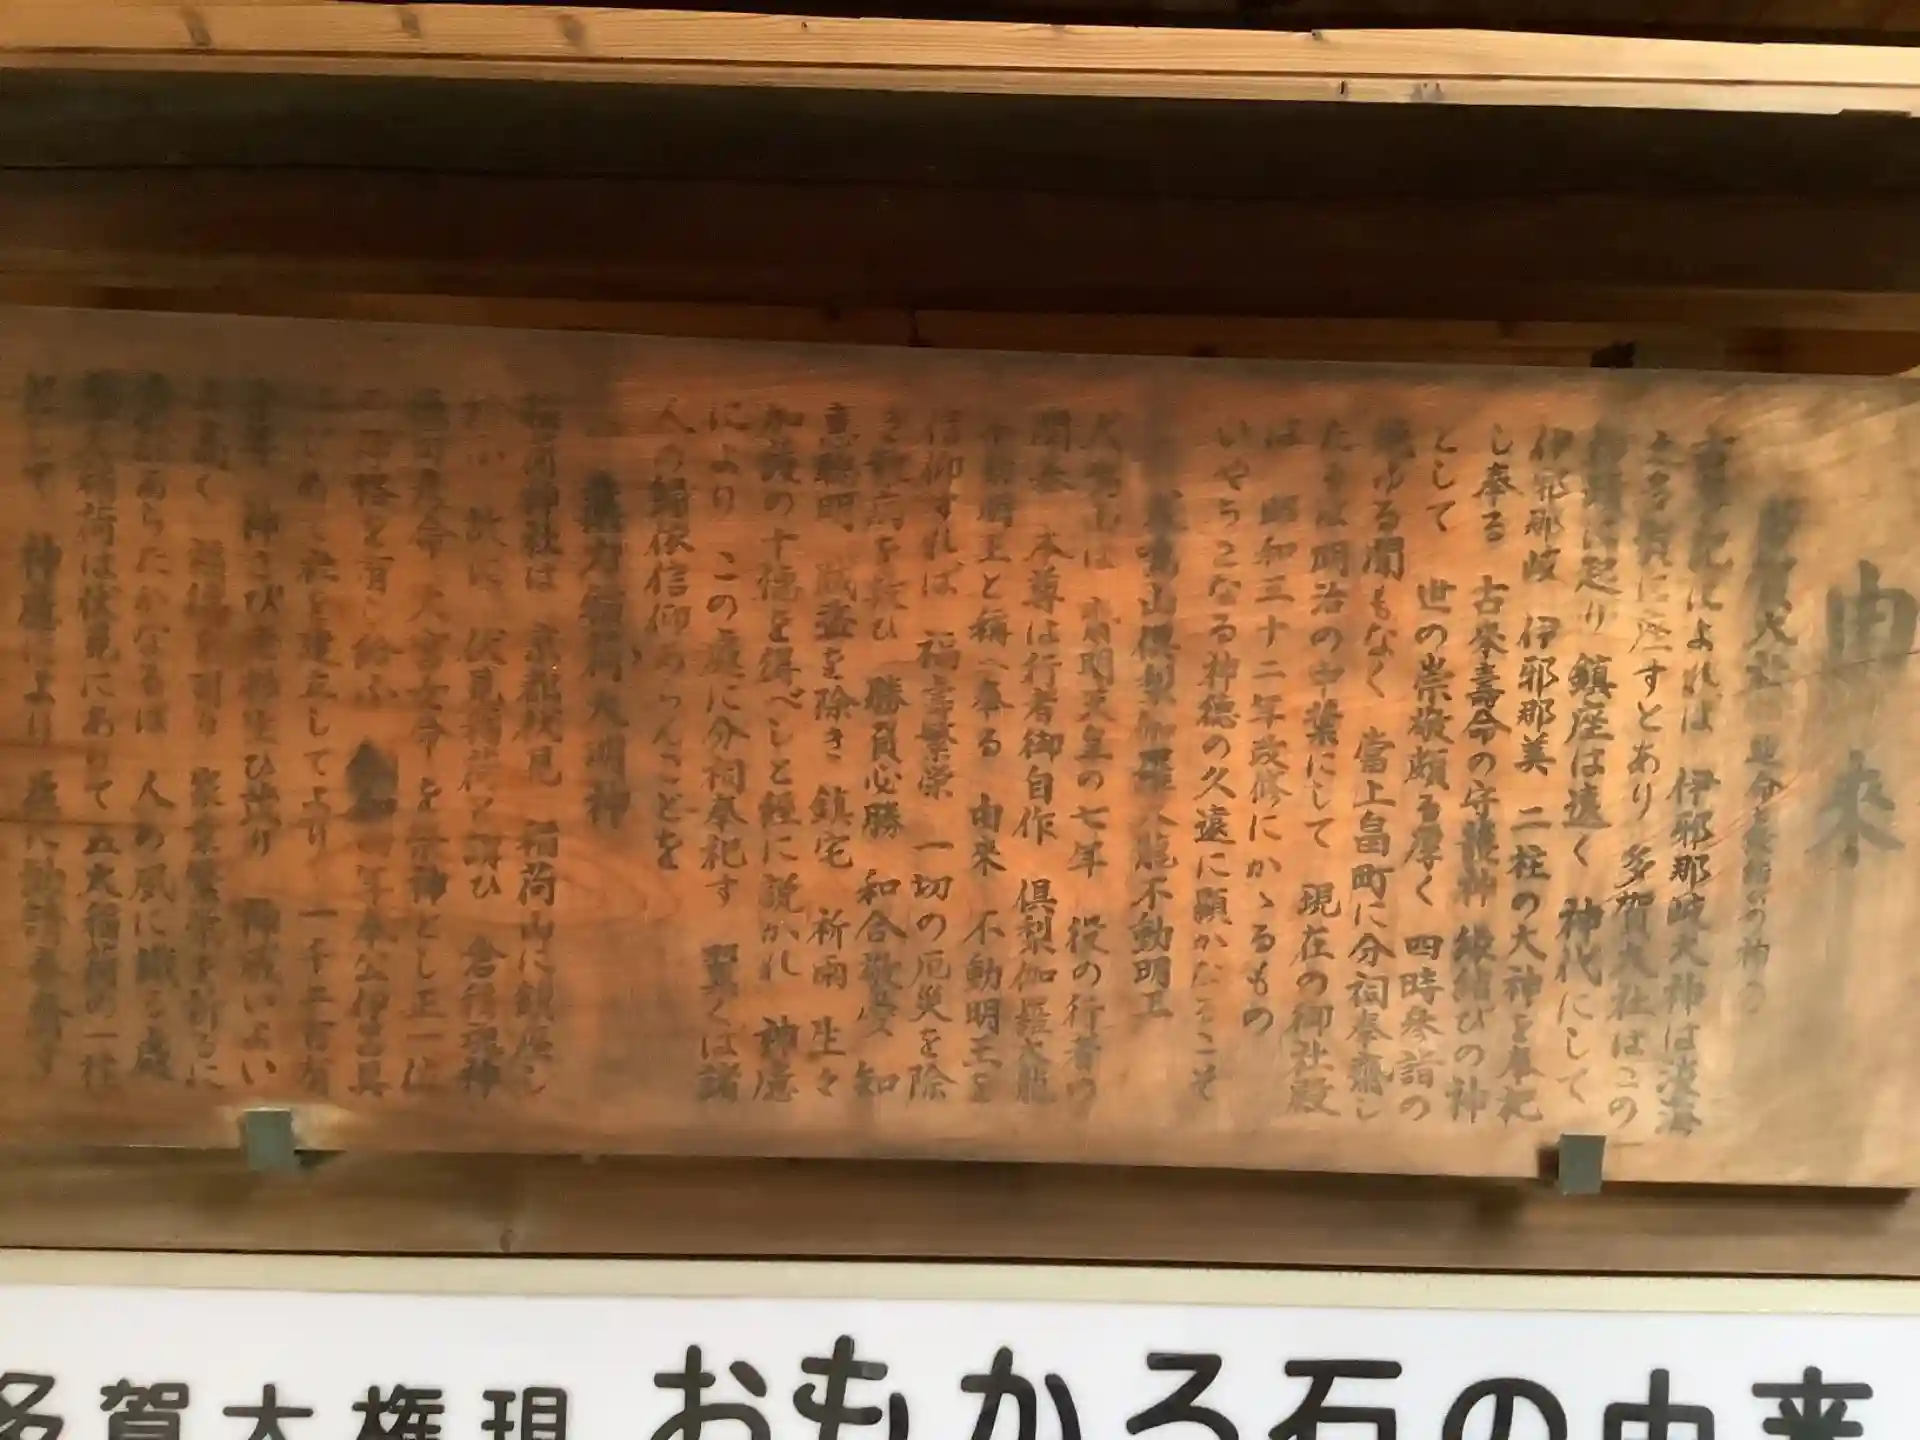 由来
多賀大社 延命長寿の神
古事記によれば 伊邪那岐大神は淡海
之多賀に座すとあり 多賀大社はこの
に起り 鎮座は遠く 神代にして
伊邪那岐 伊邪那美 二柱の大神を奉祀
し奉る 古来壽命の守護神 縁結びの神
として 世の崇敬頗る厚く 四時参詣の
絶ゆる間もなく 當上畠町に分祠奉斎し
たるは明治の中葉にして 現在の御社殿
は 昭和三十二年改修にかゝるもの
いやちこなる神徳の久遠に顕かなるこそ
山倶梨伽羅大龍不動明王
犬鳴山は 斉明天皇の七年 役の行者の
開基 本尊は行者御自作 倶梨伽羅大龍
不動明王と稱へ奉る 由来 不動明王を
信仰すれば 福壽繁栄 一切の厄災を除
き 病を 勝負必勝 和合敬愛 知
恵聰明 賊盗を除き 鎮宅 祈雨 生々
加護の十徳を得べしと経に説かれ 神慮
により この處に分祠奉祀す 翼くは諸
人の歸依信仰あらんことを
力稲荷大明神
稲荷神社は 京都伏見 稲荷山に鎮座し
故に 伏見稲荷と謂ひ 倉稲魂神
命 大宮女命を祭神とし正一位
の 格を有し給ふ 和四年秦公伊呂具
社を建立してより 一千二百有
神さび 神威いよい
高く 家業繁栄を祈るに
あらたかなるは 人の風に 處
稲荷は伏見にありて五大稲荷の一社
神慮により 茲に勧請奉斎す
多賀大権現 おもかる石の由来